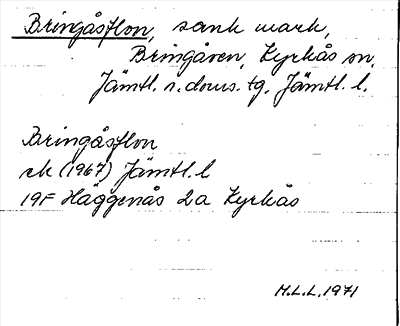 Bringåsflon, sank mark,
Bringåsen, Kyrkås sn,
Jämtl. n. doms. tg, Jämtl. l.
Bringåsflon
ek (1967) Jämtl. l
19F Häggenås 2a Kyrkås
M.L.L. 1971